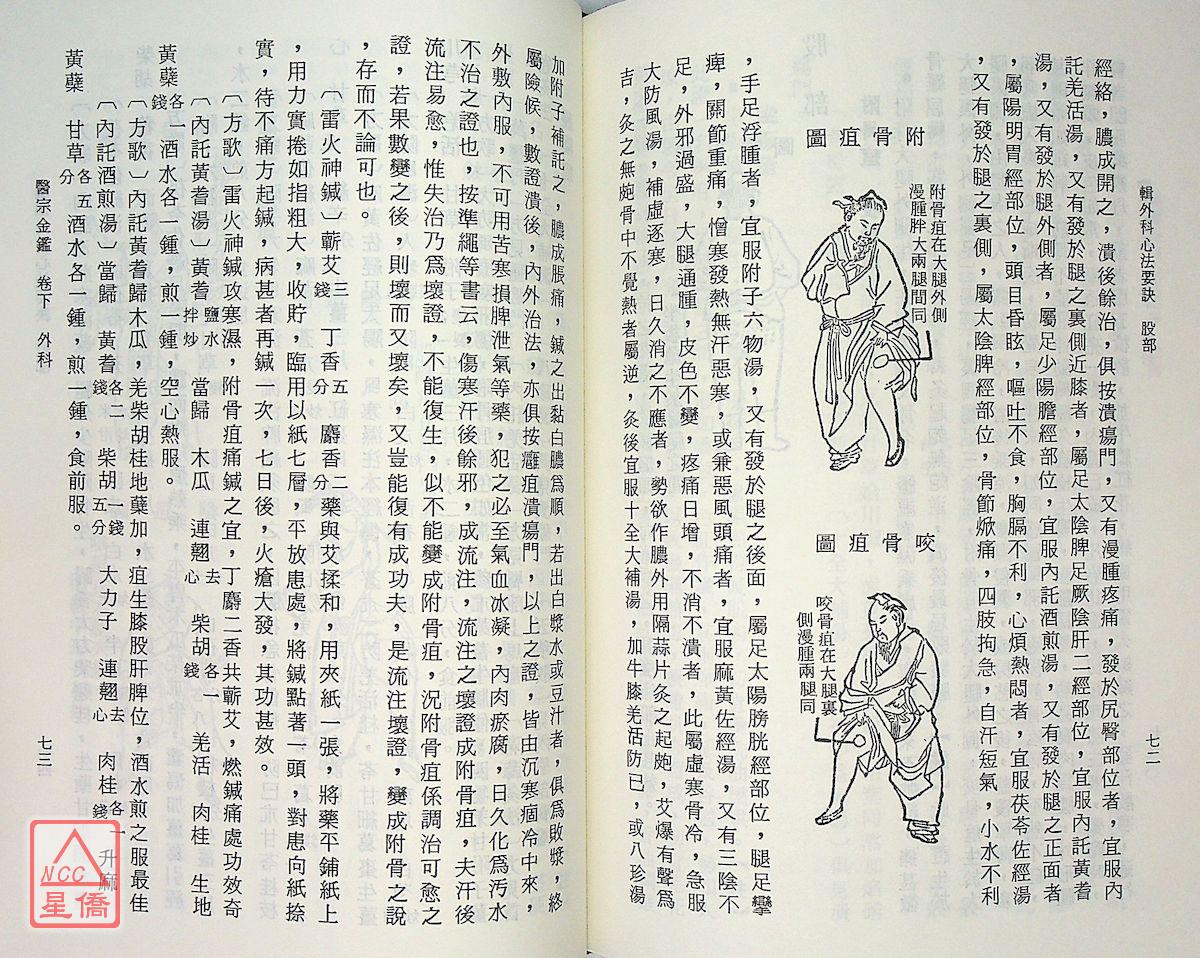 輯外科心法要訣　股部
七二
經絡，膿成開之，潰後餘治，俱按潰瘍門，又有漫腫疼痛，發於尻臀部位者，宜服內
託羌活湯，又有發於腿之裏側近膝者，屬足太陰脾足厥陰肝二經部位，宜服內託黃耆
湯，又有發於腿外側者，屬足少陽膽經部位，宜服內託酒煎湯，又有發於腿之正面者
，屬陽明胃經部位，頭目昏眩，嘔吐不食，胸膈不利，心煩熱悶者，宜服茯苓佐經湯
，又有發於腿之裏側，屬太陰脾經部位，骨節焮痛，四肢拘急，自汗短氣，小水不利
圖疽骨附
附骨疽在大腿外側
漫腫胖大兩腿間同
圖疽骨咬
咬骨疽在大腿裏
側漫腫兩腿同
，手足浮腫者，宜服附子六物湯，又有發於腿之後面，屬足太陽膀胱經部位，腿足攣
痺，關節重痛，憎寒發熱無汗惡寒，或兼惡風頭痛者，宜服麻黃佐經湯，又有三陰不
足，外邪過盛，大腿通腫，皮色不變，疼痛日增，不消不潰者，此屬虛寒骨冷，急服
大防風湯，補虛逐寒，日久消之不應者，勢欲作膿外用隔蒜片灸之起皰，艾爆有聲爲
吉，灸之無皰骨中不覺熱者屬逆，灸後宜服十全大補湯，加牛膝羌活防已，或八珍湯
加附子補託之，膿成脹痛，鍼之出黏白膿爲順，若出白漿水或豆汁者，俱爲敗漿，終
屬險候，數證潰後，內外治法，亦俱按癰疽潰瘍門，以上之證，皆由沉寒痼冷中來，
外敷內服，不可用苦寒損脾泄氣等藥，犯之必至氣血冰凝，內肉瘀腐，日久化爲汚水
不治之證也，按準繩等書云，傷寒汗後餘邪，成流注，流注之壞證成附骨疽，夫汗後
流注易愈，惟失治乃爲壞證，不能復生，似不能變成附骨疽，況附骨疽係調治可愈之
證，若果數變之後，則壞而又壞矣，又豈能復有成功夫，是流注壞證，變成附骨之說
，存而不論可也。
〔雷火神鍼〕蘄艾三錢　丁香五分　麝香二分　藥與艾揉和，用夾紙一張，將藥平鋪紙上
，用力實捲如指粗大，收貯，臨用以紙七層，平放患處，將鍼點著一頭，對患向紙捺
實，待不痛方起鍼，病甚者再鍼一次，七日後，火瘡大發，其功甚效。
〔方歌〕雷火神鍼攻寒濕，附骨疽痛鍼之宜，丁麝二香共蘄艾，燃鍼痛處功效奇
〔內託黃耆湯〕黃耆鹽水拌炒　當歸　木瓜　連翹去心　柴胡各一錢　羌活　肉桂　生地
黃蘗各一錢　酒水各一鍾，煎一鍾，空心熱服。
〔方歌〕內託黃耆歸木瓜，羌柴胡桂地蘗加，疽生膝股肝脾位，酒水煎之服最佳
〔內託酒煎湯〕當歸　黃耆各二錢　柴胡一錢五分　大力子　連翹去心　肉桂各一錢　升麻
黃蘗　甘草各五分　酒水各一鍾，煎一鍾，食前服。
醫宗金鑑　卷下　外科
七三
NCC
星僑